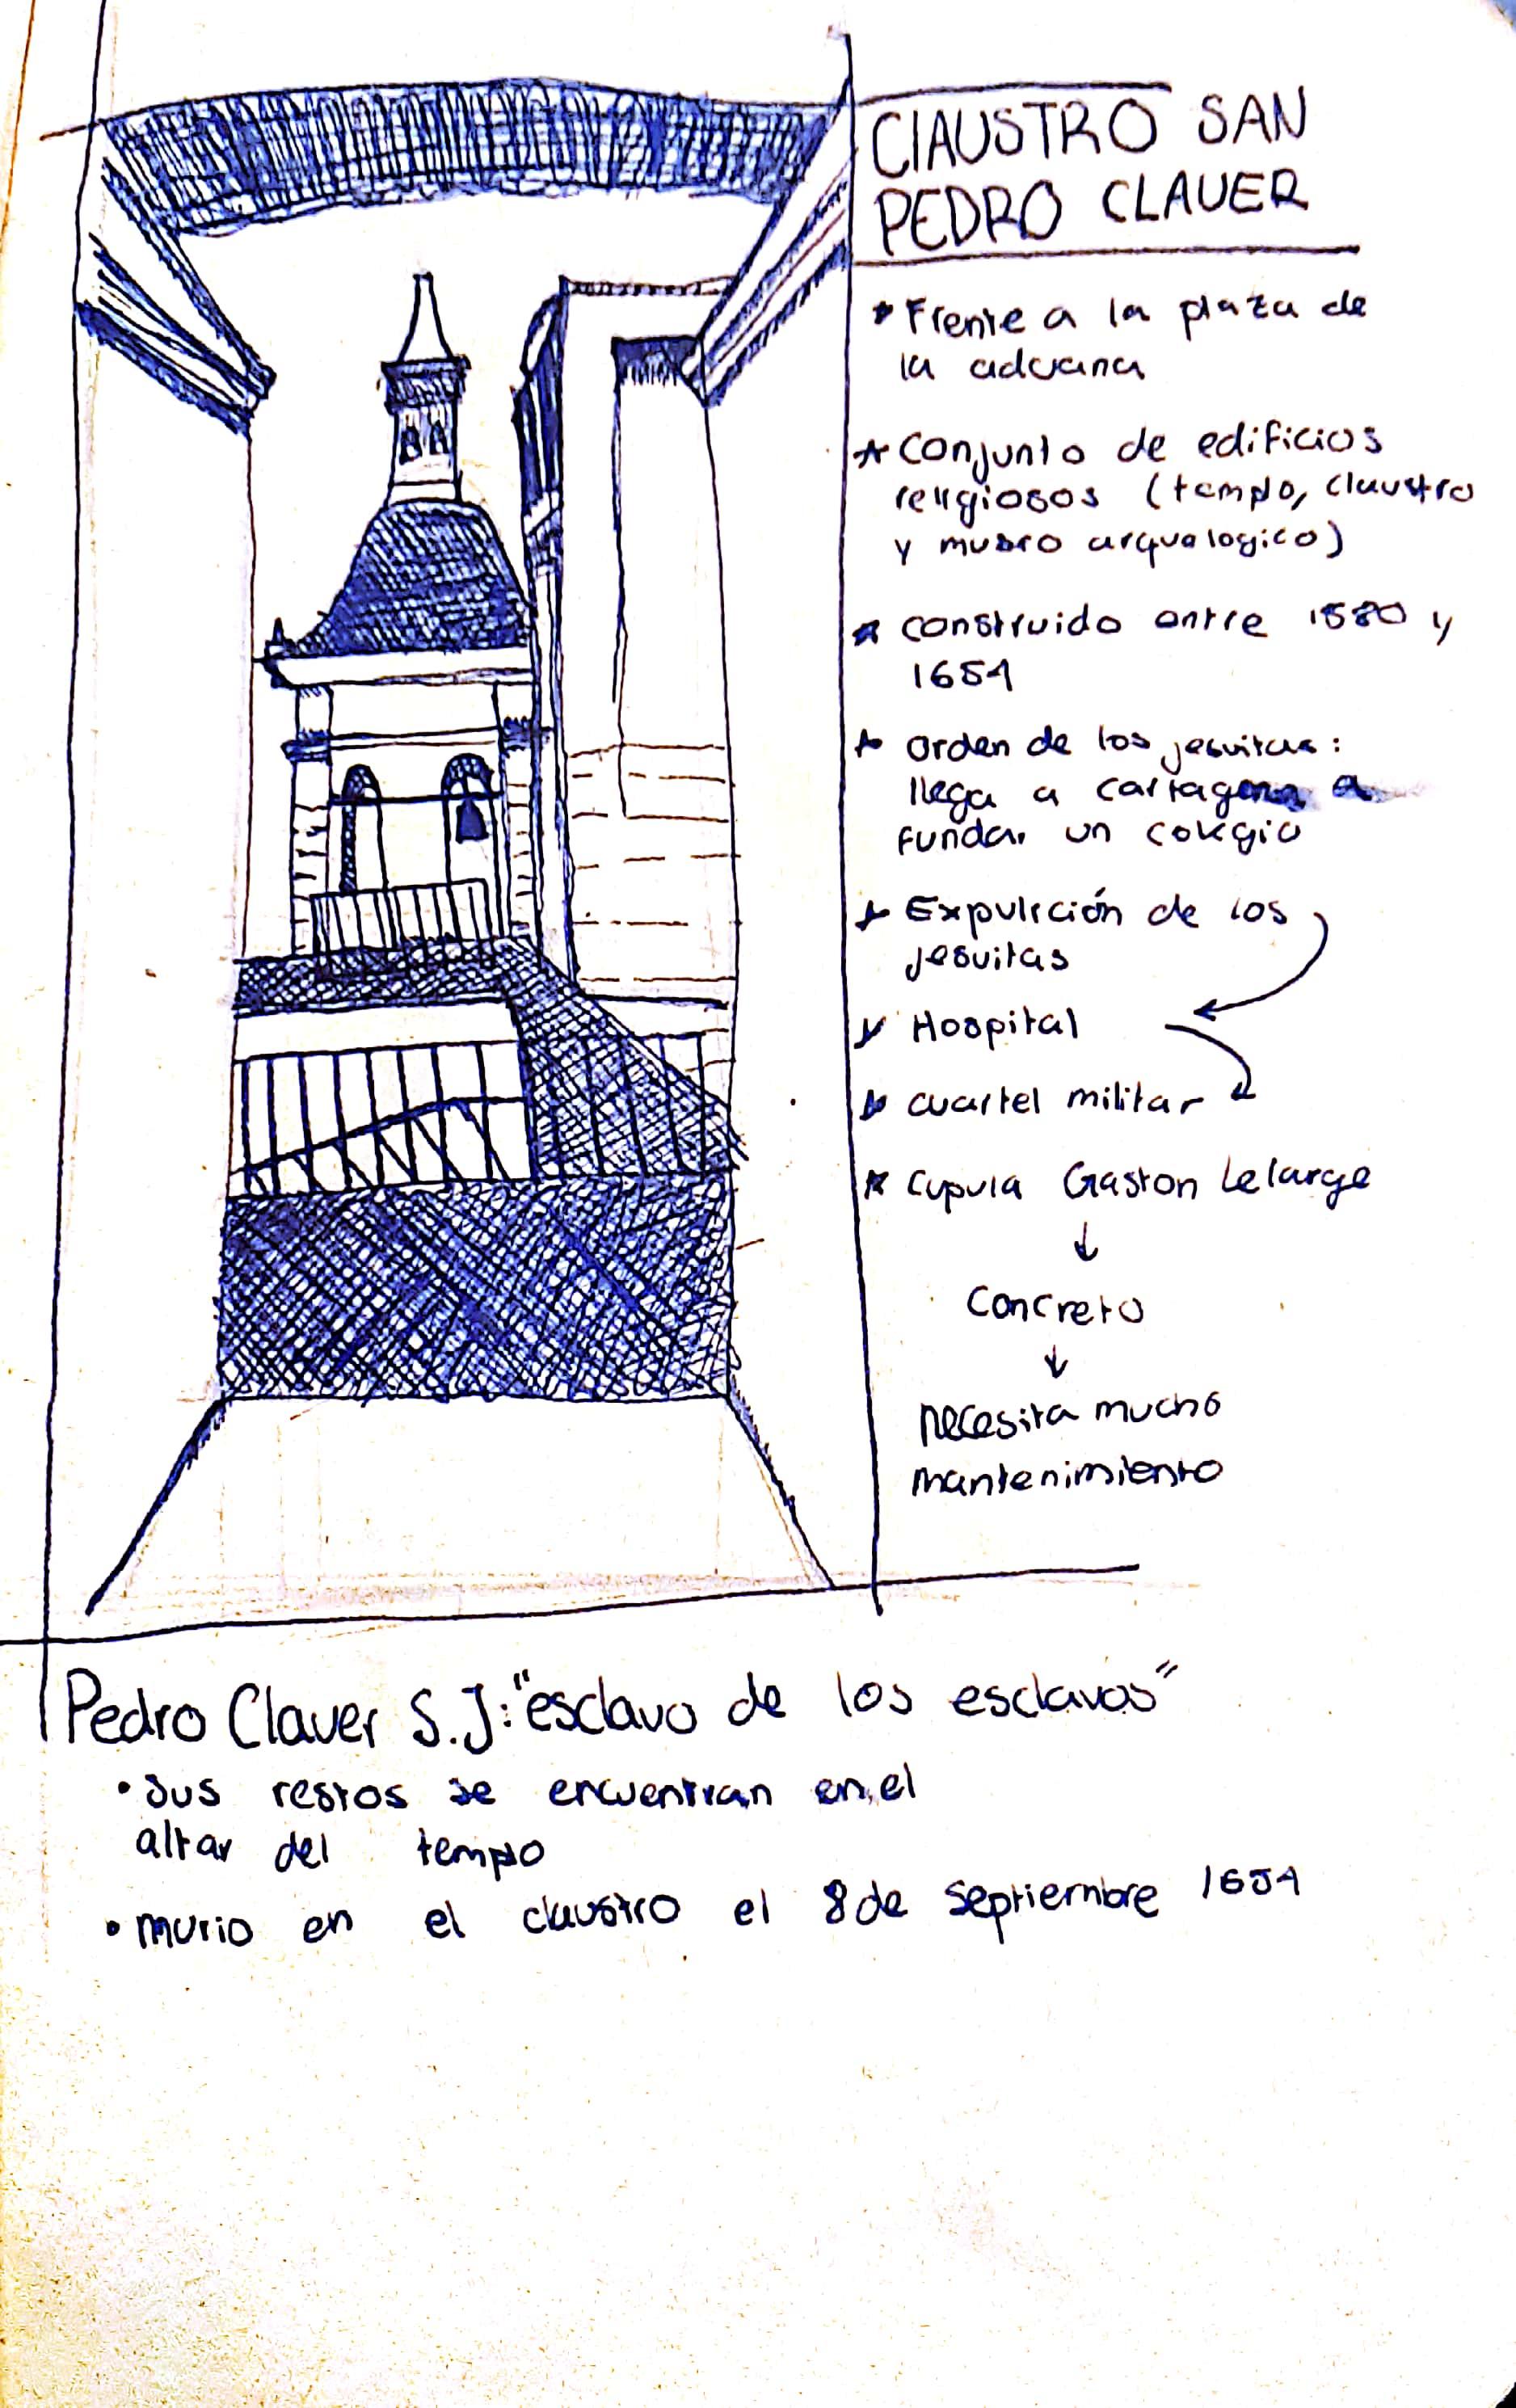 ClAUSTRO SAN
PEDRO CLAVER
Frente a la plaza de
la aduana
Conjunto de edificios
religiosos (templo, claustro
y museo arquologico)
construido entre 1580 y
1654
orden de los jesuitas:
llega a cartagena a
fundar un colegio
Expulsción de los
jesuitas
Hospital
cuartel militar
cupula Gaston Lelarge
↓
Concreto
↓
Necesita mucho
mantenimiento
Pedro Claver S.J: "esclavo de los esclavos"
• Sus restos se encuentran en el
altar del templo
• murio en el claustro el 8 de septiembre 1654